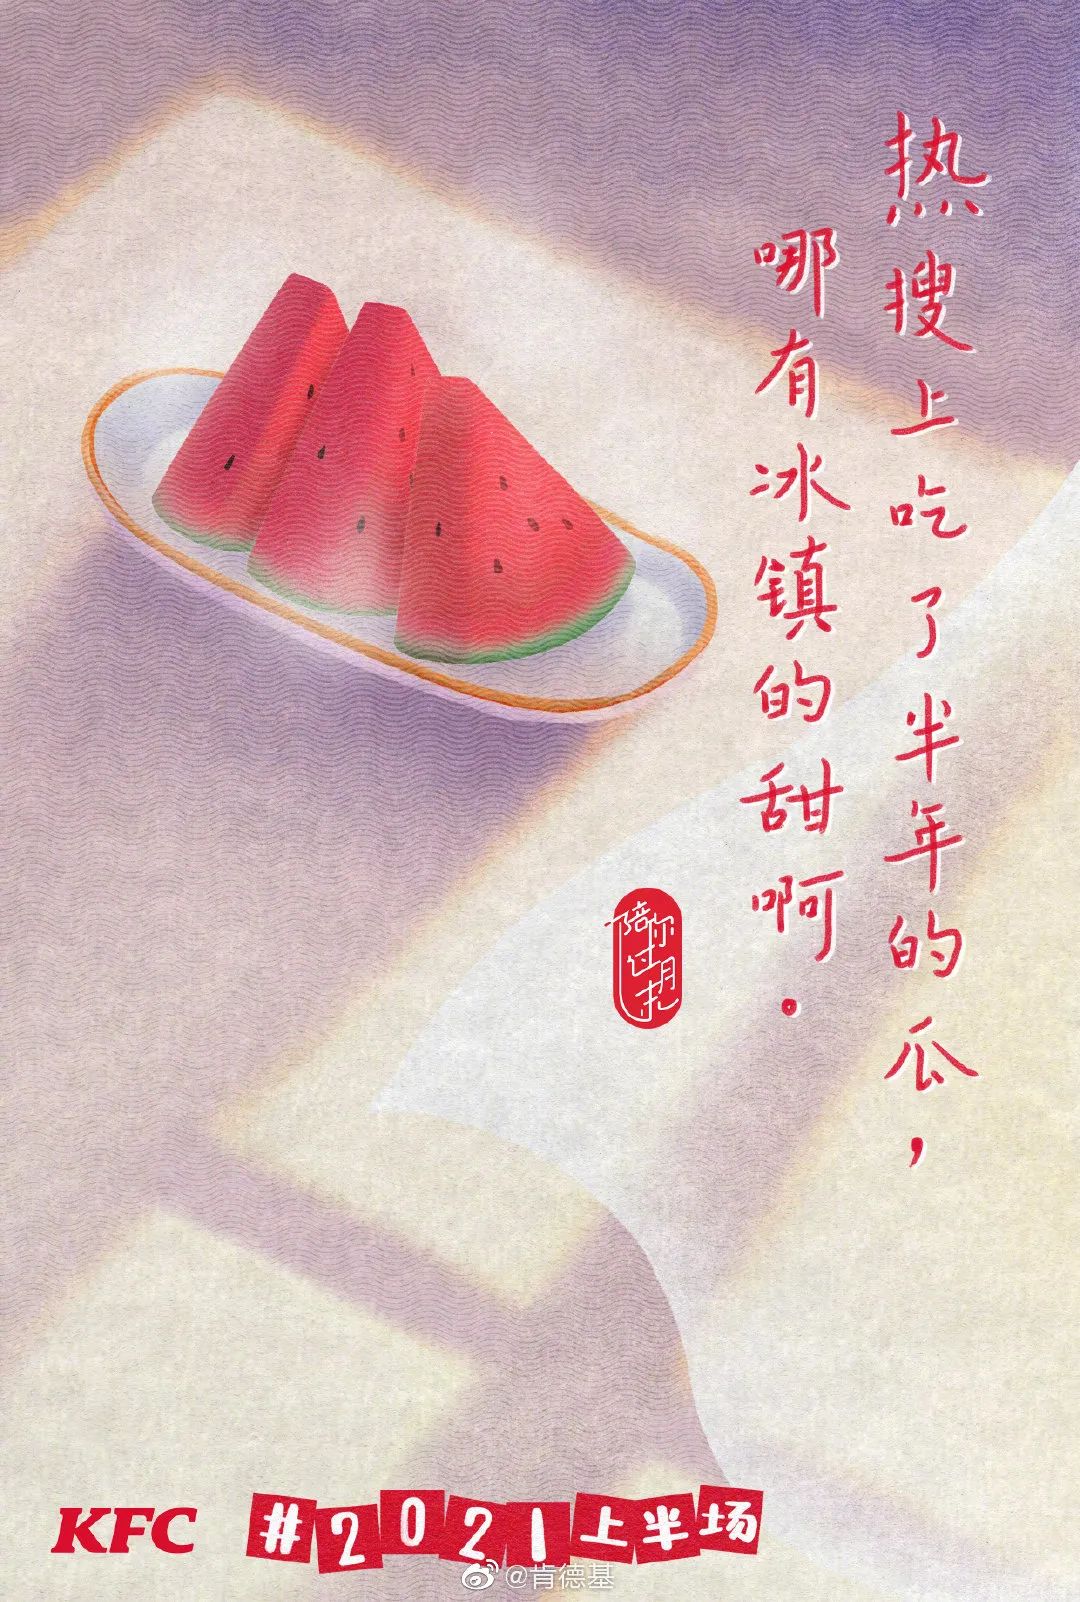 热搜上吃了半年的瓜，
哪有冰镇的甜啊.
陪你
过
KFC
#2021上半场
@肯德基